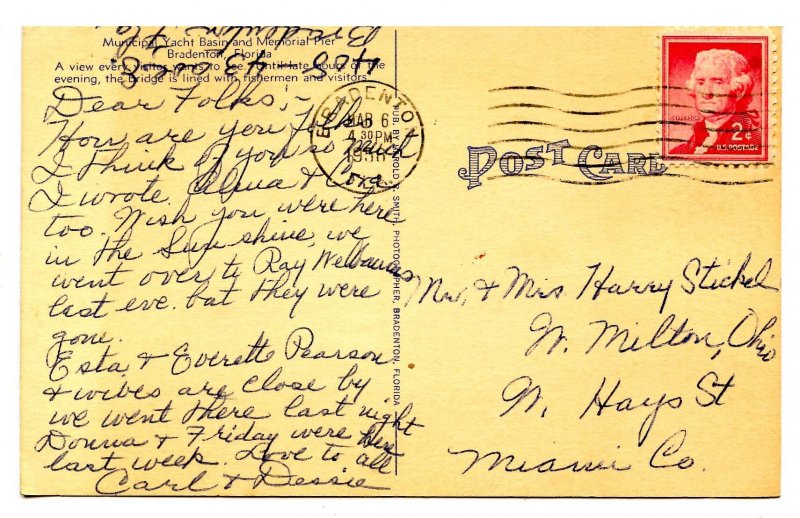 Municipal Yacht Basin and Memorial Pier
Bradenton, Florida
A view every visitor wants to see. Until late hours of the
evening, the bridge is lined with fishermen and visitors.
400 - 43
Bradenton Fla
Dear Folks:-
How are you folks
I think of you so much
I wrote &
too. Wish you were here
in the Sun shine, we
went over to Ray Welbaums
last eve. but they were
gone.
Esta & Everett Pearson
& wives are close by
we went there last night
Donna & Friday were here
last week. Love to all
Carl & Dessie
BRADENTON
MAR 6
4 30 PM
FLA.
PUB. BY HAROLD SMITH, PHOTOGRAPHER, BRADENTON, FLORIDA
POST CARD
2¢
U.S. POSTAGE
Mr. & Mrs Harry Stickel
W. Milton, Ohio
Hays St
Miami Co.